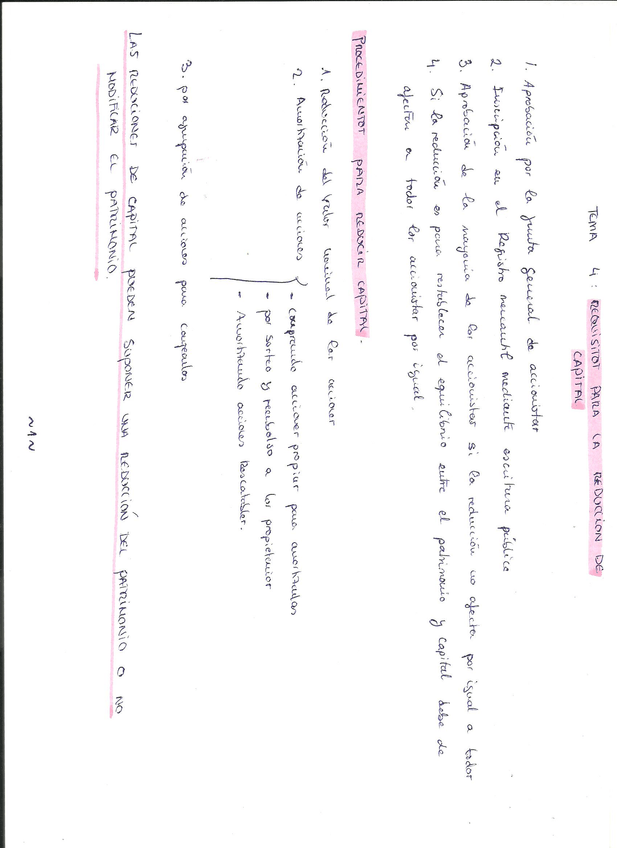 TEMA 4: REQUISITOS PARA LA REDUCCION DE
CAPITAL
1. Aprobación por la junta general de accionistas
2. Inscripción en el Registro mercantil mediante escritura pública
3. Aprobación de la mayoria de los accionistas si la reducción no afecta por igual a todos
4. Si la reducción es para restablecer el equilibrio entre el patrimonio y capital debe de
afectar a todos los accionistas por igual.
PROCEDIMIENTOS PARA REDUCIR CAPITAL.
1. Reducción del valor nominal de las acciones
2. Amortización de acciones
- comprando acciones propias para amortizarlas
- por sorteo y reembolso a los propietarios
- Amortizando acciones rescatables.
3. por agrupación de acciones para canjearlas
LAS REDUCIONES DE CAPITAL PUEDEN SUPONER UNA REDUCCIÓN DEL PATRIMONIO O NO
MODIFICAR EL PATRIMONIO.
~1~